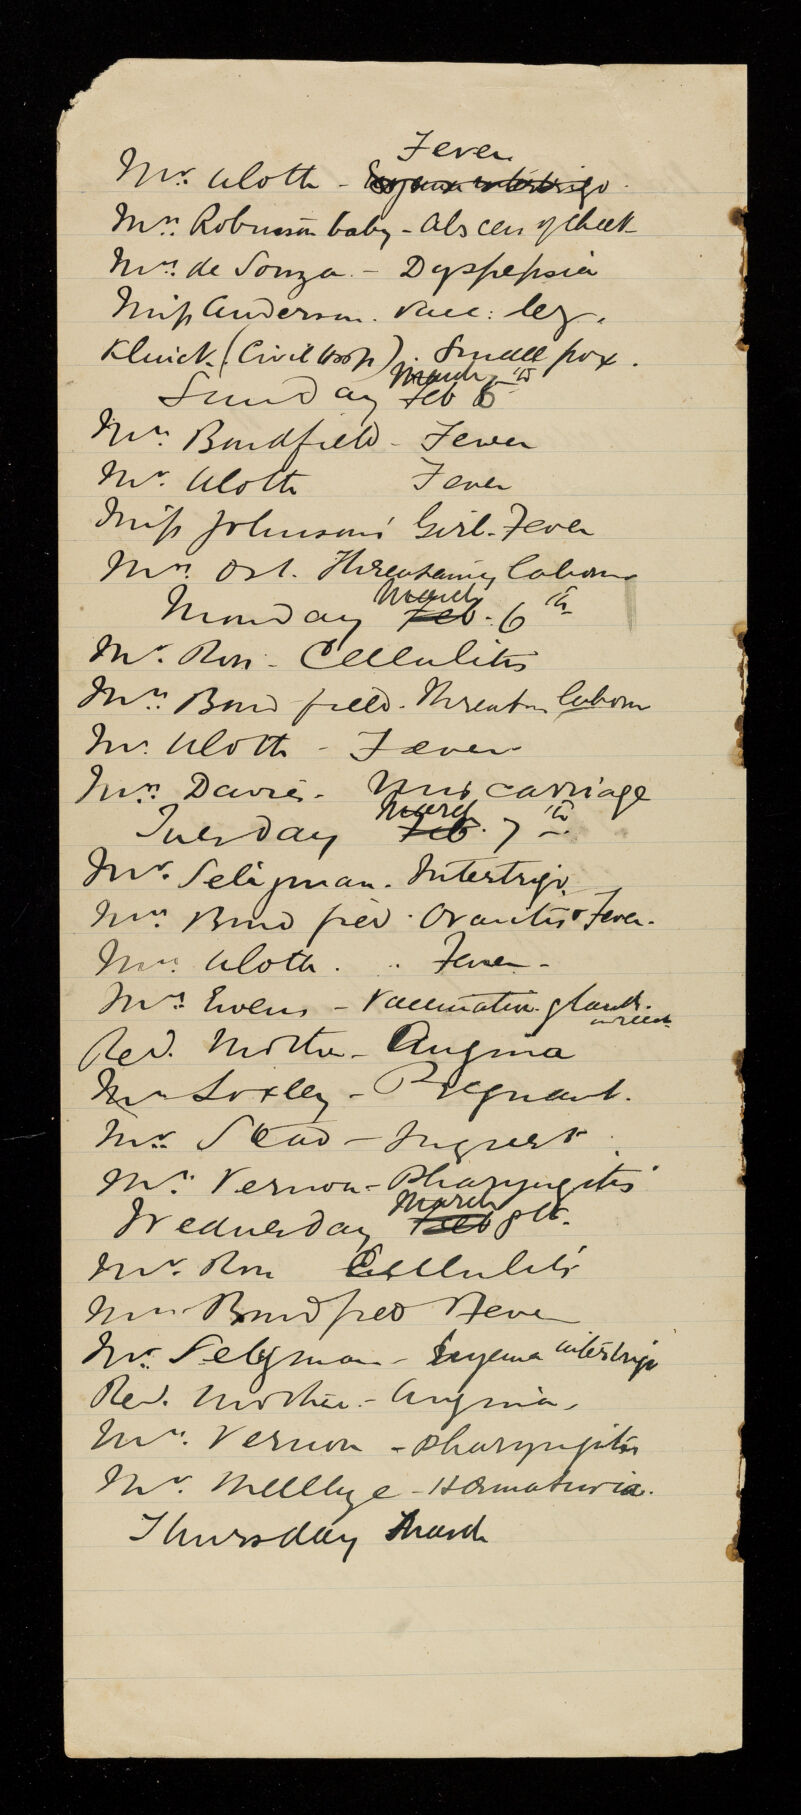 Fever
Mr. Uloth - Eczema intertrigo
Mrs. Robinson baby - Abscess of cheek
Mrs. de Souza - Dyspepsia
Miss Anderson. Vacc: leg.
(Civil Hosp). Small pox.
March
Sunday Feb 5th
Mrs. Bondfield - Fever
Mr. Uloth Fever
Miss Johnson's Girl. Fever
Mrs. Ost. Threatening labour
March
Monday Feb. 6th
Mr. Ross - Cellulitis
Mrs. Bondfield. Threaten labour
Mr. Uloth - Fever
Mrs. Davis. Miscarriage
March
Tuesday Feb. 7th
Mr. Seligman. Intertrigo
Mrs. Bondfield. Ovaritis & Fever.
Uloth. Fever -
Mrs. Evens - Vaccination glands.
Rev. Mother - Angina
Loxley - Pregnant.
Mr. Stead - Inquest
Mrs. Vernon - Pharyngitis
March
Wednesday Feb 8th.
Mr. Ross Cellulitis
Mrs. Bondfield Fever
Mr. Seligman - Eczema intertrigo
Rev. Mother - Angina.
Mrs. Vernon - Pharyngitis
Mr. - Hæmaturia.
Thursday March